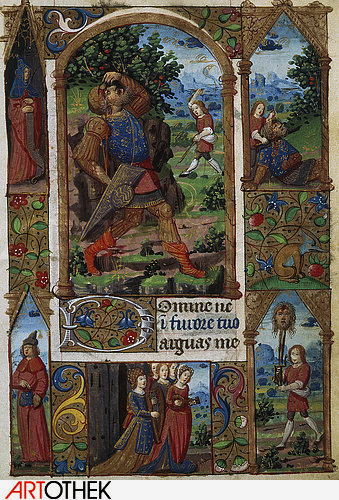 Domine ne
i furore tuo
arguas me
ARTOTHEK